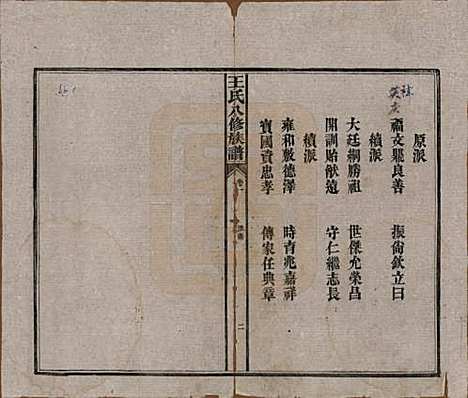 原派
福文單良善　振尙欽立曰
續派
大廷嗣勝祖　世傑允榮昌
開訓貽猷遠　守仁繼志長
續派
雍和敷德澤　時青兆嘉祥
寶國資忠孝　傳家任典章
王氏八修族譜
卷
二